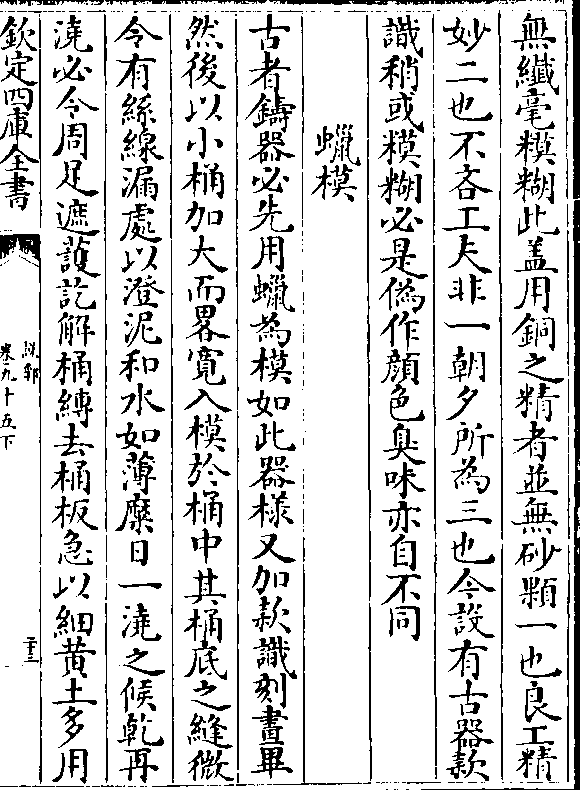 無纖毫糢糊此蓋用銅之精者並無砂顆一也良工精
妙二也不吝工夫非一朝夕所為三也今設有古器款
識稍或糢糊必是偽作顔色臭味亦自不同
蠟模
古者鑄器必先用蠟為模如此器樣又加款識刻畫畢
然後以小桶加大而畧寬入模於桶中其桶底之縫微
令有絲線漏處以澄泥和水如薄糜日一澆之候乾再
澆必令周足遮護訖解桶縛去桶板急以細黄土多用
欽定四庫全書
說郛
卷九十五下
二十三